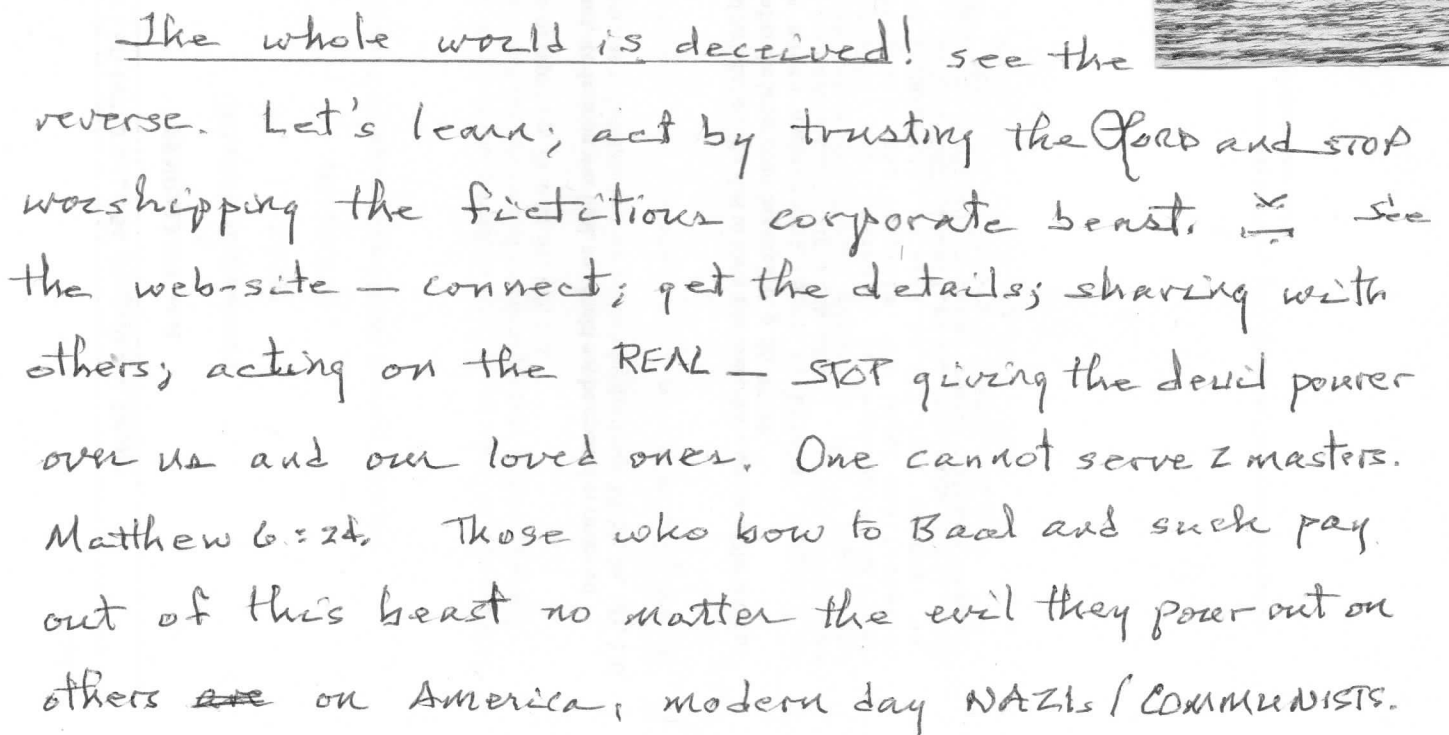 The whole world is deceived! see the
reverse. Let's learn; act by trusting the LORD and STOP
worshipping the fictitious corporate beast. See
the web-site — connect; get the details; sharing with
others; acting on the REAL — STOP giving the devil power
over us and our loved ones. One cannot serve 2 masters.
Matthew 6:24. Those who bow to Baal and suck pay
out of this beast no matter the evil they pour out on
others are on America, modern day NAZIs / COMMUNISTS.